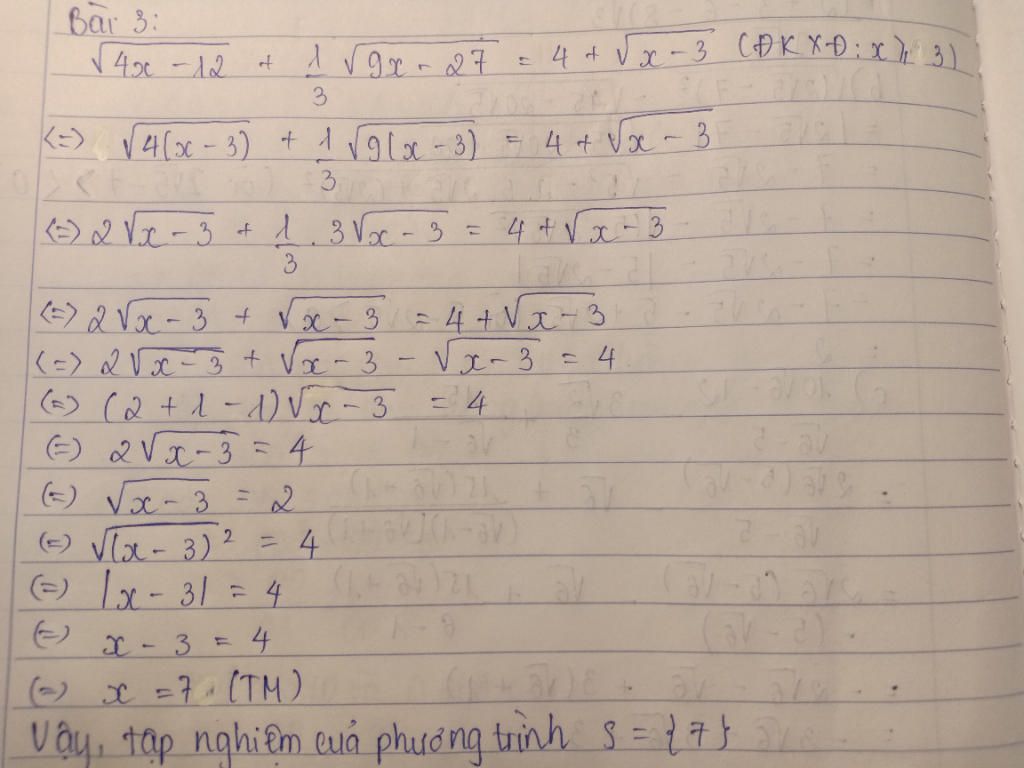 Bài 3:
√(4x - 12) + 1/3 √(9x - 27) = 4 + √(x - 3) (ĐKXĐ: x ≥ 3)
(=) √(4(x - 3)) + 1/3 √(9(x - 3)) = 4 + √(x - 3)
(=) 2√(x - 3) + 1/3 . 3√(x - 3) = 4 + √(x - 3)
(=) 2√(x - 3) + √(x - 3) = 4 + √(x - 3)
(=) 2√(x - 3) + √(x - 3) - √(x - 3) = 4
(=) (2 + 1 - 1)√(x - 3) = 4
(=) 2√(x - 3) = 4
(=) √(x - 3) = 2
(=) √((x - 3)²) = 4
(=) |x - 3| = 4
(=) x - 3 = 4
(=) x = 7 (TM)
Vậy, tập nghiệm của phương trình S = {7}